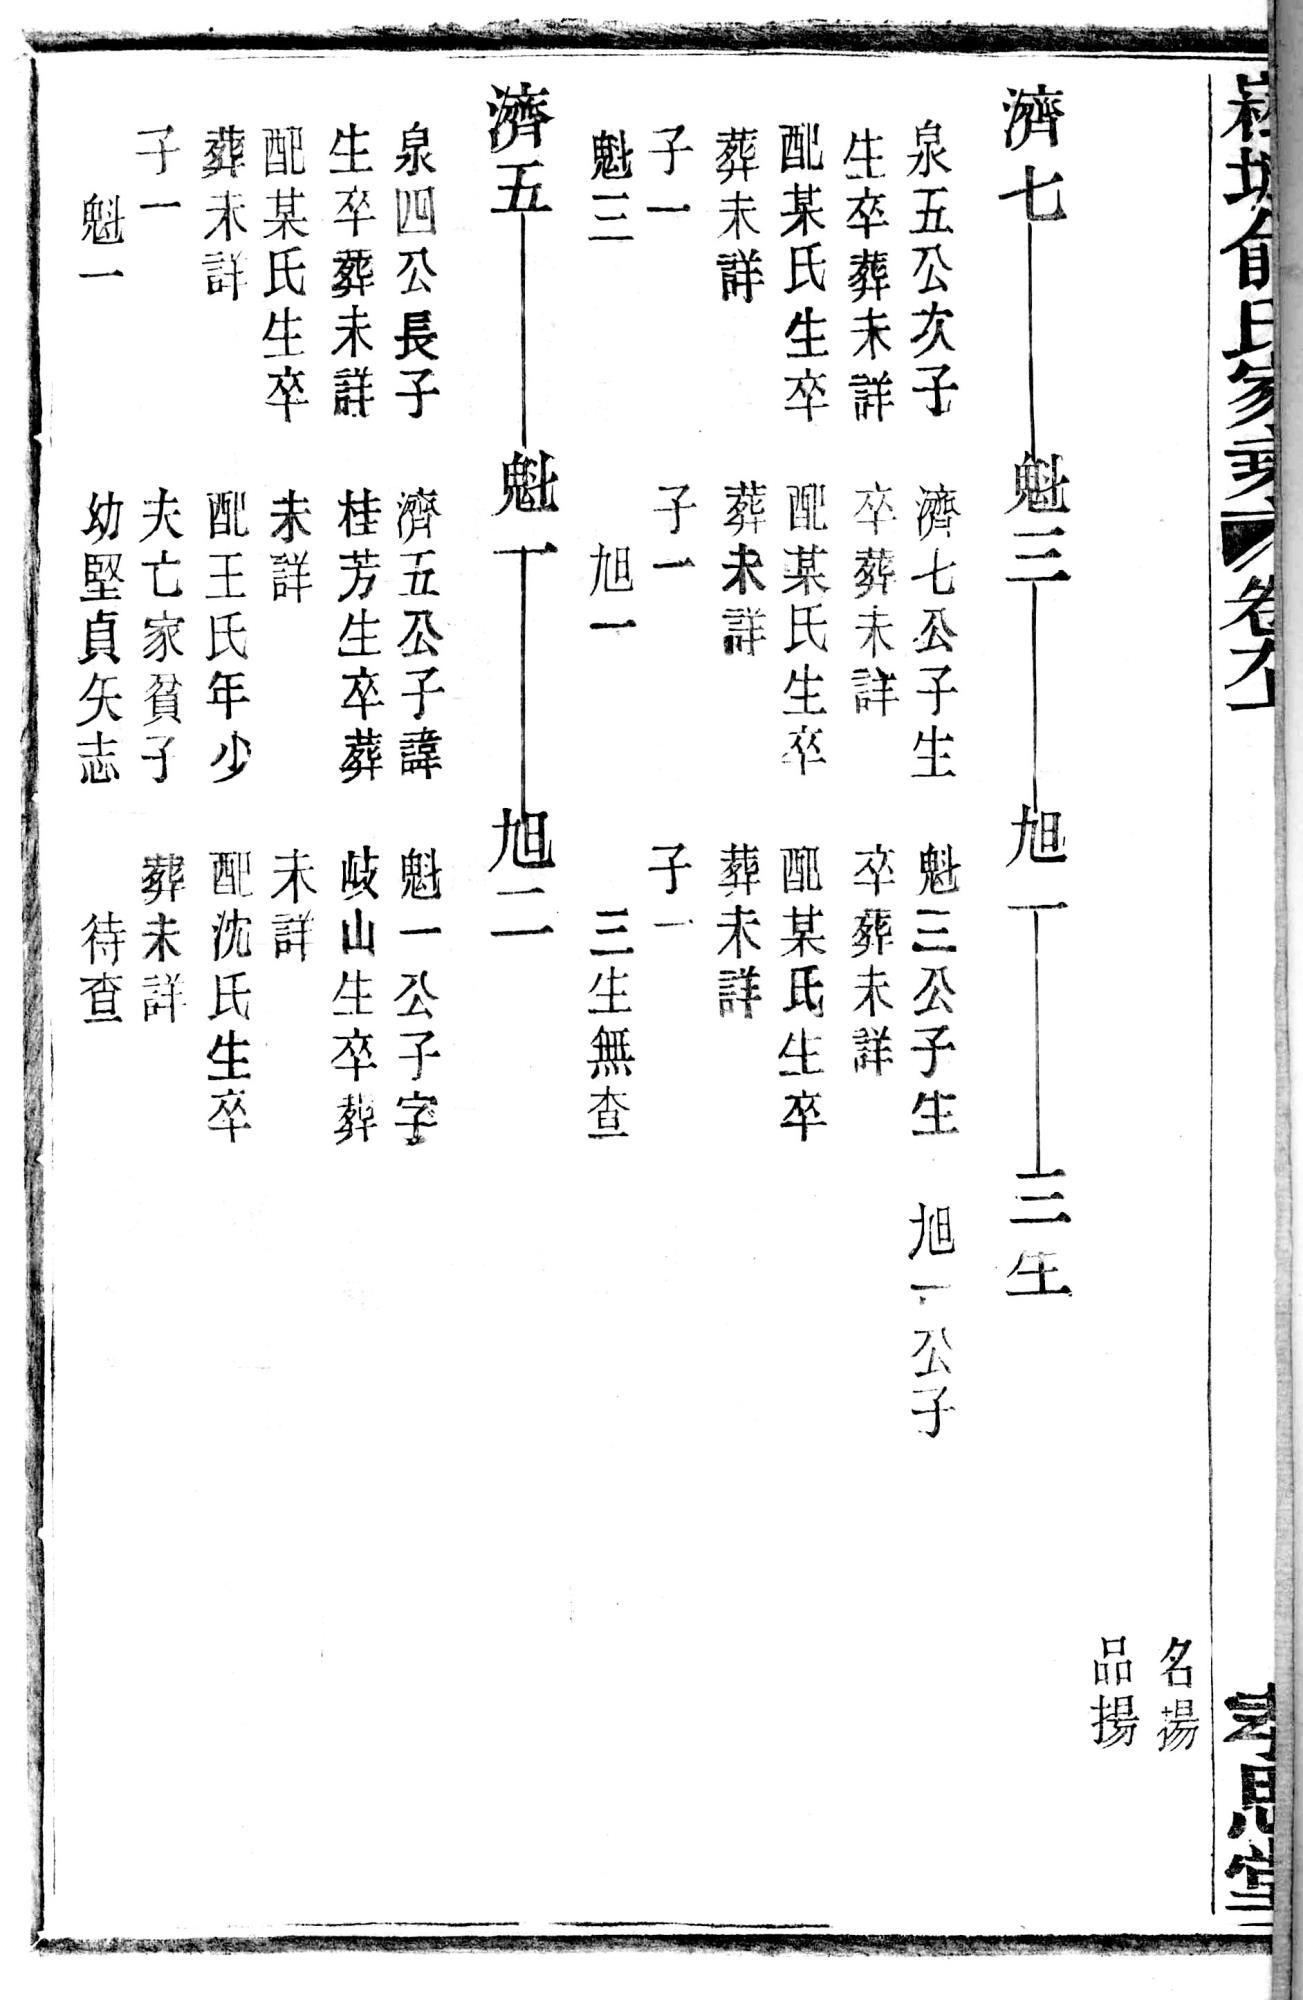 俞氏家乘 卷九上 孝思堂
名揚
品揚
濟七 魁三 旭一 三生
泉五公次子 濟七公子生 魁三公子生 旭一公子
生卒葬未詳 卒葬未詳 卒葬未詳
配某氏生卒 配某氏生卒 配某氏生卒
葬未詳 葬未詳 葬未詳
子一 子一 子一
魁三 旭一 三生無查
濟五 魁一 旭二
泉四公長子 濟五公子諱 魁一公子字
生卒葬未詳 桂芳生卒葬 岐山生卒葬
配某氏生卒 未詳 未詳
葬未詳 配王氏年少 配沈氏生卒
子一 夫亡家貧子 葬未詳
魁一 幼堅貞矢志 待查